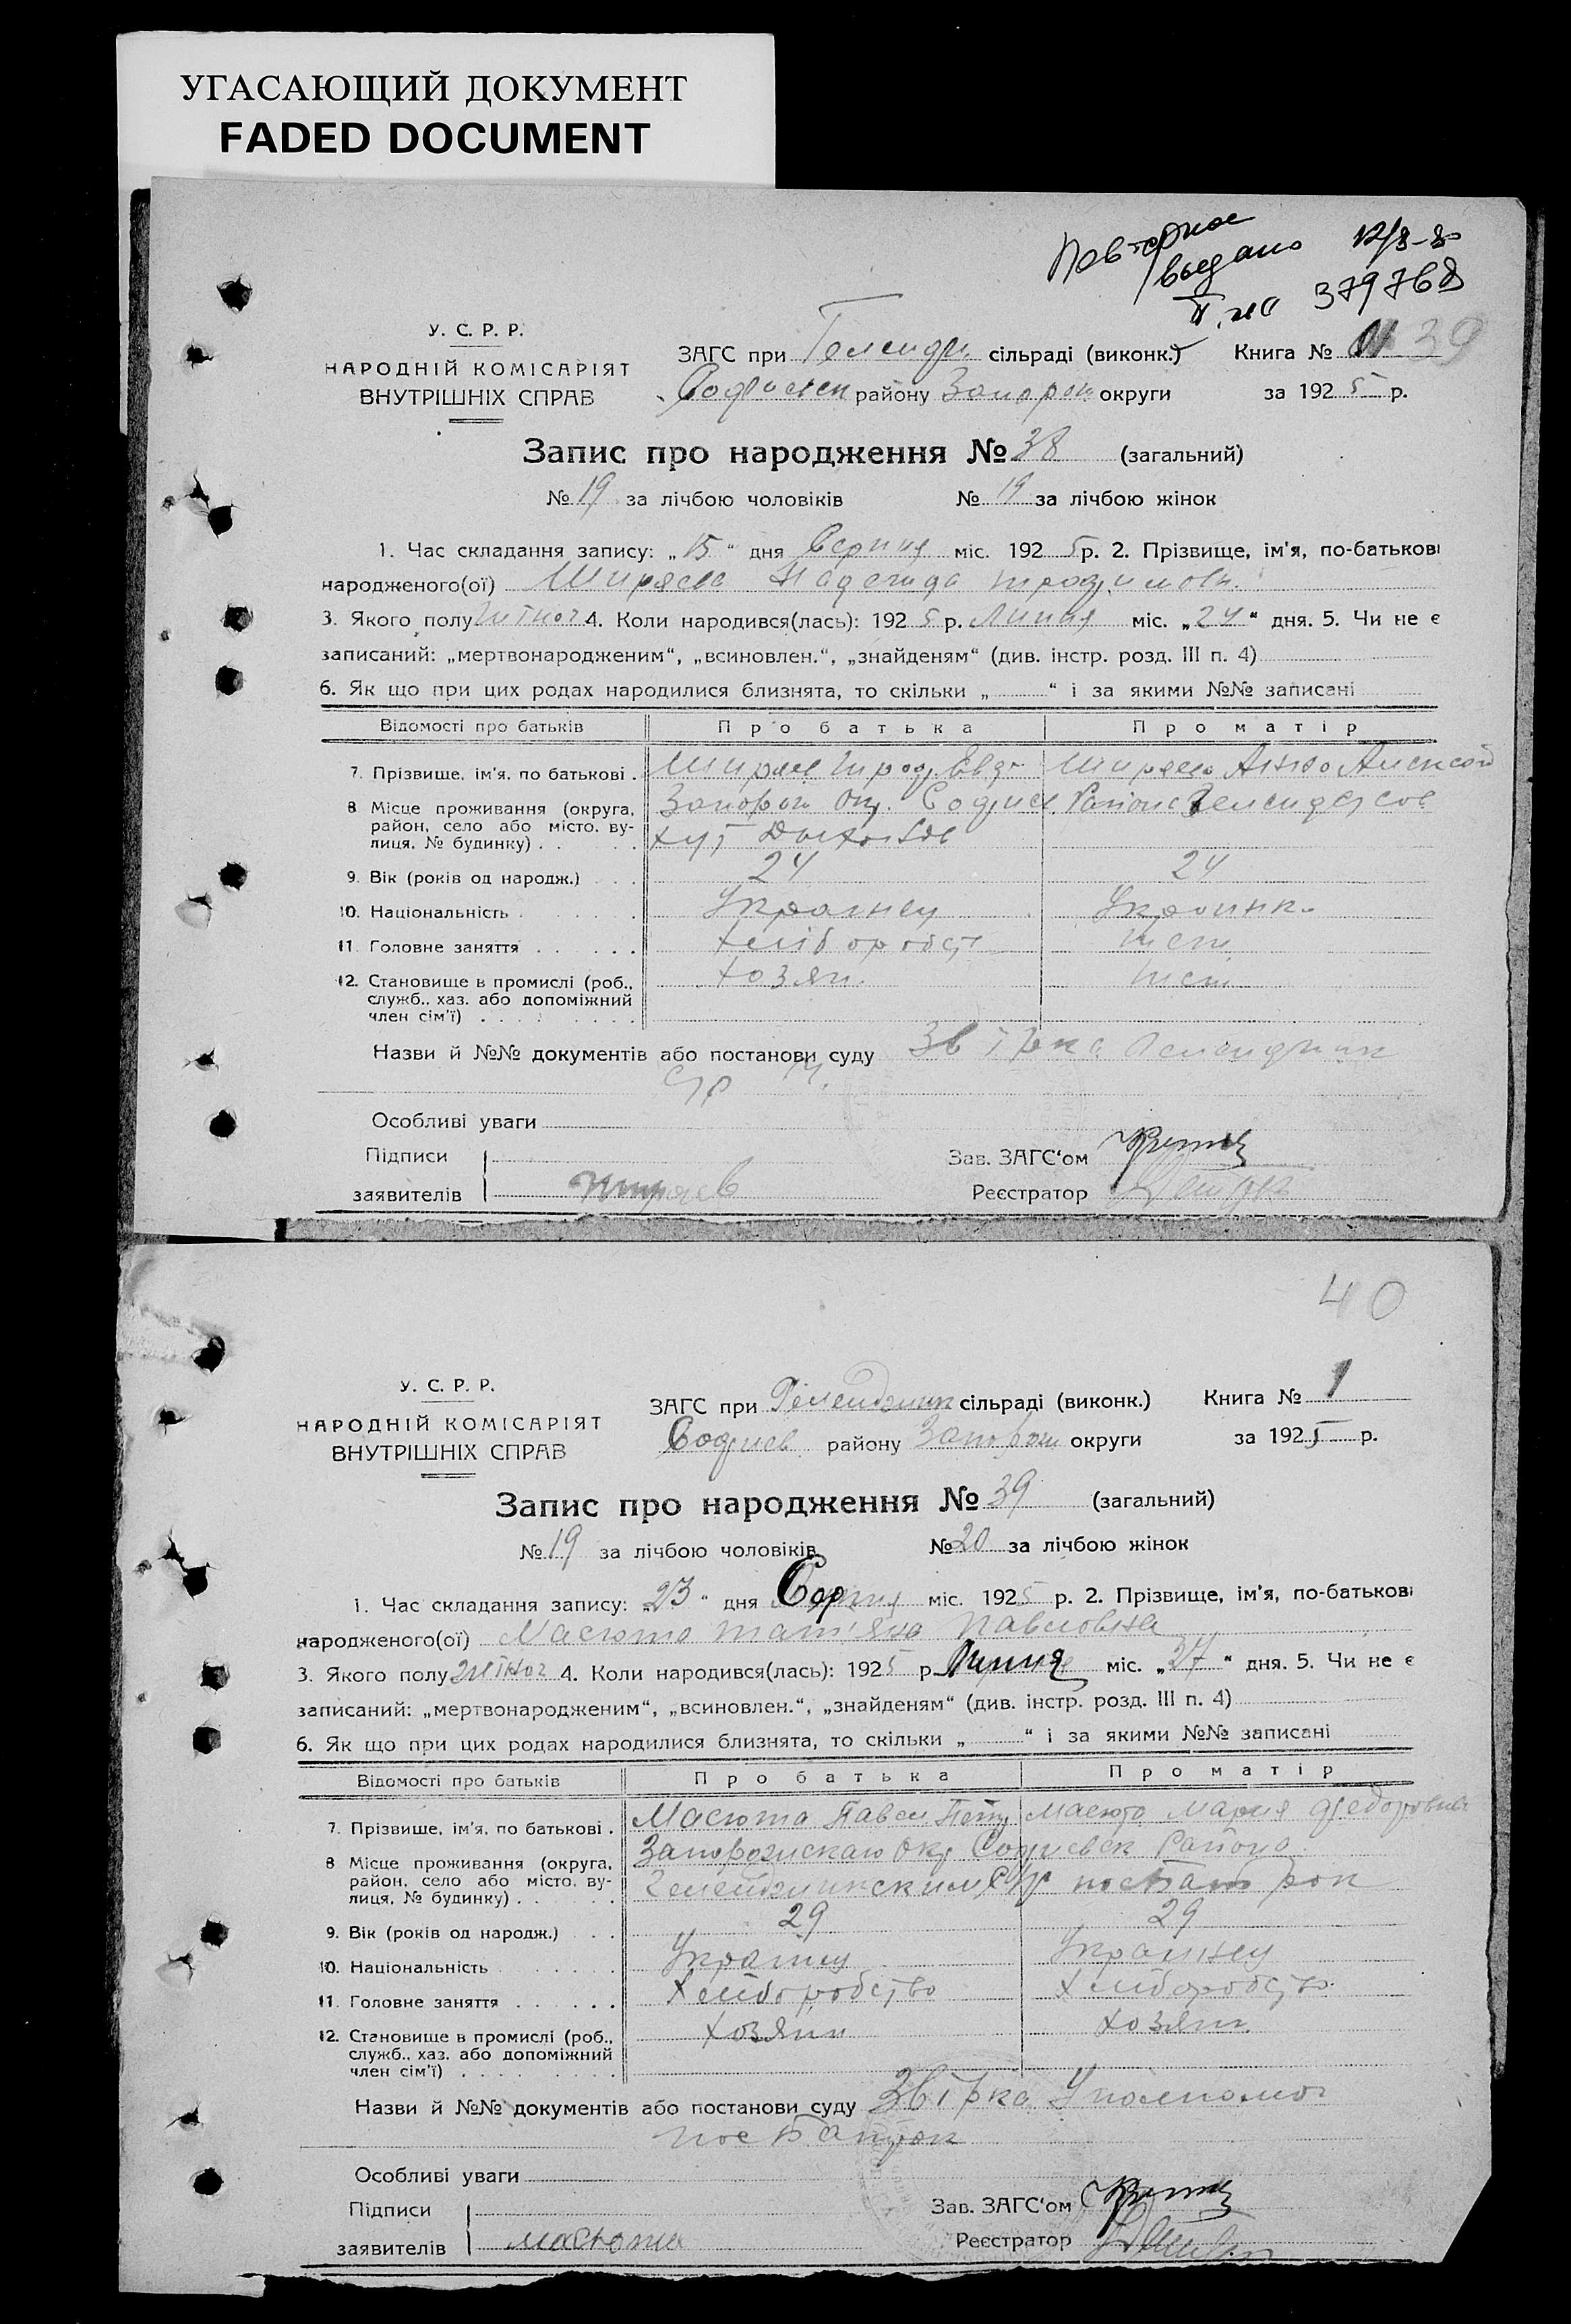 УГАСАЮЩИЙ ДОКУМЕНТ
FADED DOCUMENT
Повторное
выдано 12/8-80
379768
У. С. Р. Р.
НАРОДНІЙ КОМІСАРІЯТ
ВНУТРІШНІХ СПРАВ
ЗАГС при сільраді (виконк.) Книга № 39
Софиевск району Запорож округи за 1925 р.
Запис про народження № 38 (загальний)
№ 19 за лічбою чоловіків № 19 за лічбою жінок
1. Час складання запису: „15“ дня Серпня міс. 1925 р. 2. Прізвище, ім'я, по-батькові
народженого(ої) Ширяева Надежда Трофимовн.
3. Якого полу жіноч 4. Коли народився(лась): 1925 р. Липня міс. „24“ дня. 5. Чи не є
записаний: „мертвонародженим“, „всиновлен.“, „знайденям“ (див. інстр. розд. III п. 4)
6. Як що при цих родах народилися близнята, то скільки „ “ і за якими №№ записані
Відомості про батьків Про батька Про матір
7. Прізвище, ім'я, по батькові . Ширяев Троф. Ширяева Анна Алексей
8 Місце проживання (округа, Запорож Окр. Софиев. Района
район, село або місто, ву- хут
лиця, № будинку) . .
9. Вік (років од народж.) . . . 24 24
10. Національність . . . . . . Українец Українк.
11. Головне заняття . . . . . . хлібороб
12. Становище в промислі (роб., хозяин.
служб., хаз. або допоміжний
член сім'ї) . . . . . . . .
Назви й №№ документів або постанови суду Звірка
Особливі уваги
Підписи Зав. ЗАГС'ом
заявителів Ширяев Реєстратор
40
У. С. Р. Р.
НАРОДНІЙ КОМІСАРІЯТ
ВНУТРІШНІХ СПРАВ
ЗАГС при сільраді (виконк.) Книга № 1
Софиев району Запорож округи за 1925 р.
Запис про народження № 39 (загальний)
№ 19 за лічбою чоловіків № 20 за лічбою жінок
1. Час складання запису: „23“ дня Серпня міс. 1925 р. 2. Прізвище, ім'я, по-батькові
народженого(ої) Масюта Тат'яна Павловна
3. Якого полу жіноч 4. Коли народився(лась): 1925 р. Липня міс. „27“ дня. 5. Чи не є
записаний: „мертвонародженим“, „всиновлен.“, „знайденям“ (див. інстр. розд. III п. 4)
6. Як що при цих родах народилися близнята, то скільки „ “ і за якими №№ записані
Відомості про батьків Про батька Про матір
7. Прізвище, ім'я, по батькові . Масюта Павел Петр Масюта Мария Федоровна
8 Місце проживання (округа, Окр Софиевск Района
район, село або місто, ву-
лиця, № будинку) . . . . .
9. Вік (років од народж.) . . . 29 29
10. Національність . . . . . . Українец Українец
11. Головне заняття . . . . . . Хліборобство Хліборобство
12. Становище в промислі (роб., хозяин хозяин.
служб., хаз. або допоміжний
член сім'ї) . . . . . . . .
Назви й №№ документів або постанови суду Звірка Уполномоч
Особливі уваги
Підписи Зав. ЗАГС'ом
заявителів масюта Реєстратор